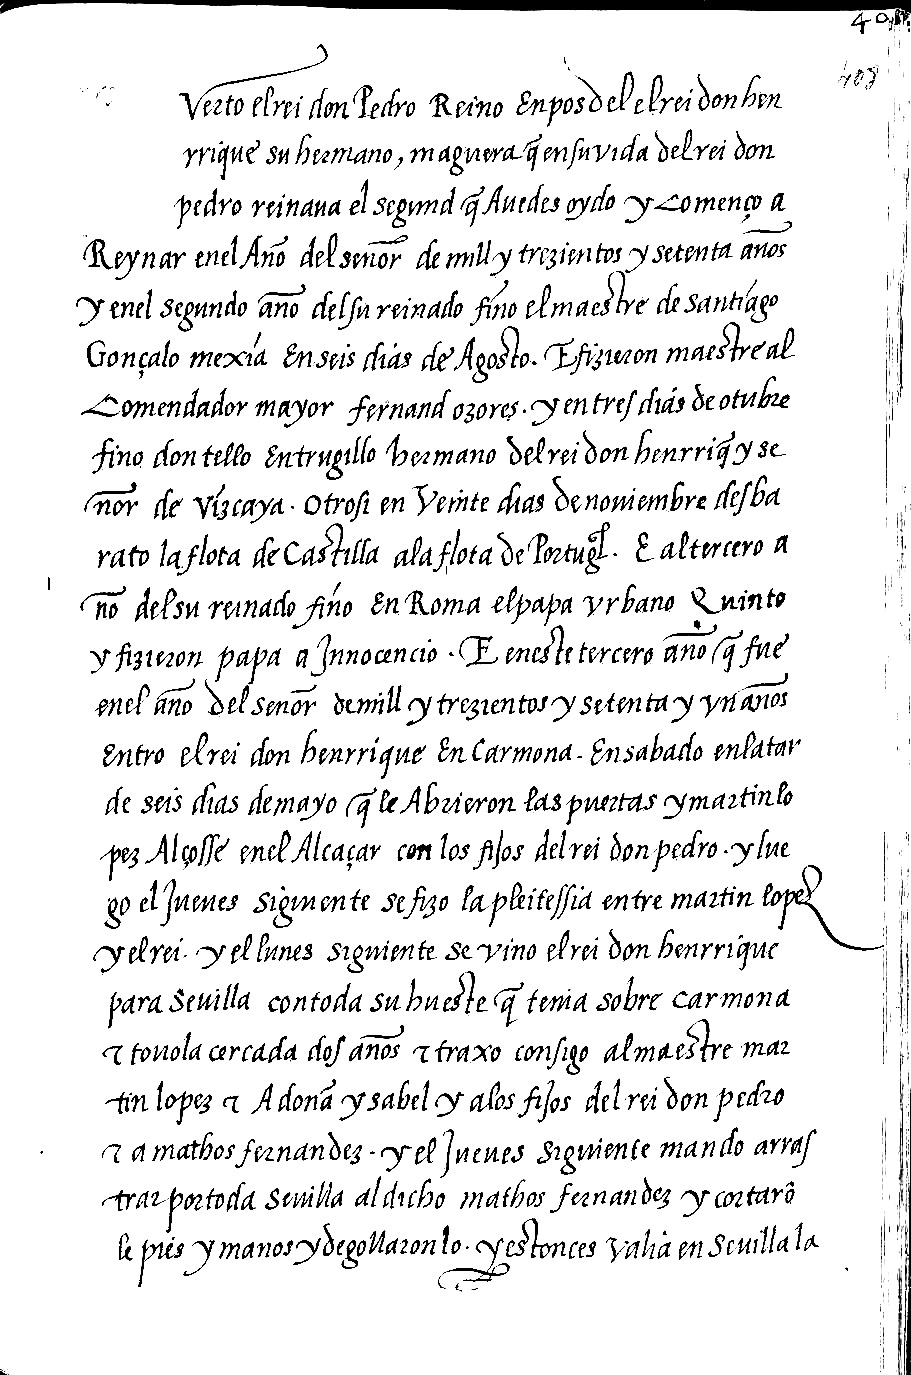 40
408
Verto el rei don Pedro Reino En pos del el rei don hen
rrique su hermano, maguera q̃ en su vida del rei don
pedro reinaua el segund q̃ Auedes oydo y Començo a
Reynar enel Año del señor de mill y trezientos y setenta años
y enel segundo año del su reinado fino el maestre de santiago
Gonçalo mexia En seis dias de Agosto. E fizieron maestre al
Comendador mayor fernand ozores. y en tres dias de otubre
fino don tello En trugillo hermano del rei don henrriq̃ y se
ñor de vizcaya. otrosi en veinte dias de nouiembre desba
rato la flota de Castilla a la flota de Portugl. E al tercero a
ño del su reinado fino En Roma el papa vrbano Quinto
y fizieron papa a Innocencio. E en este tercero año q̃ fue
enel año del señor de mill y trezientos y setenta y vn años
Entro el rei don henrrique En Carmona. En sabado enla tar
de seis dias de mayo q̃ le Abrieron las puertas y martin lo
pez Alçosse enel Alcaçar con los fijos del rei don pedro. y lue
go el Jueues siguiente se fizo la pleitessia entre martin lopez
y el rei. y el lunes siguiente se vino el rei don henrrique
para Seuilla con toda su hueste q̃ tenia sobre carmona
⁊ touola cercada dos años ⁊ traxo consigo al maestre mar
tin lopez ⁊ A doña ysabel y a los fijos del rei don pedro
⁊ a mathos fernandez. y el Jueues siguiente mando arras
trar por toda seuilla al dicho mathos fernandez y cortarõ
le pies y manos y degollaron lo. y estonces valia en Seuilla la